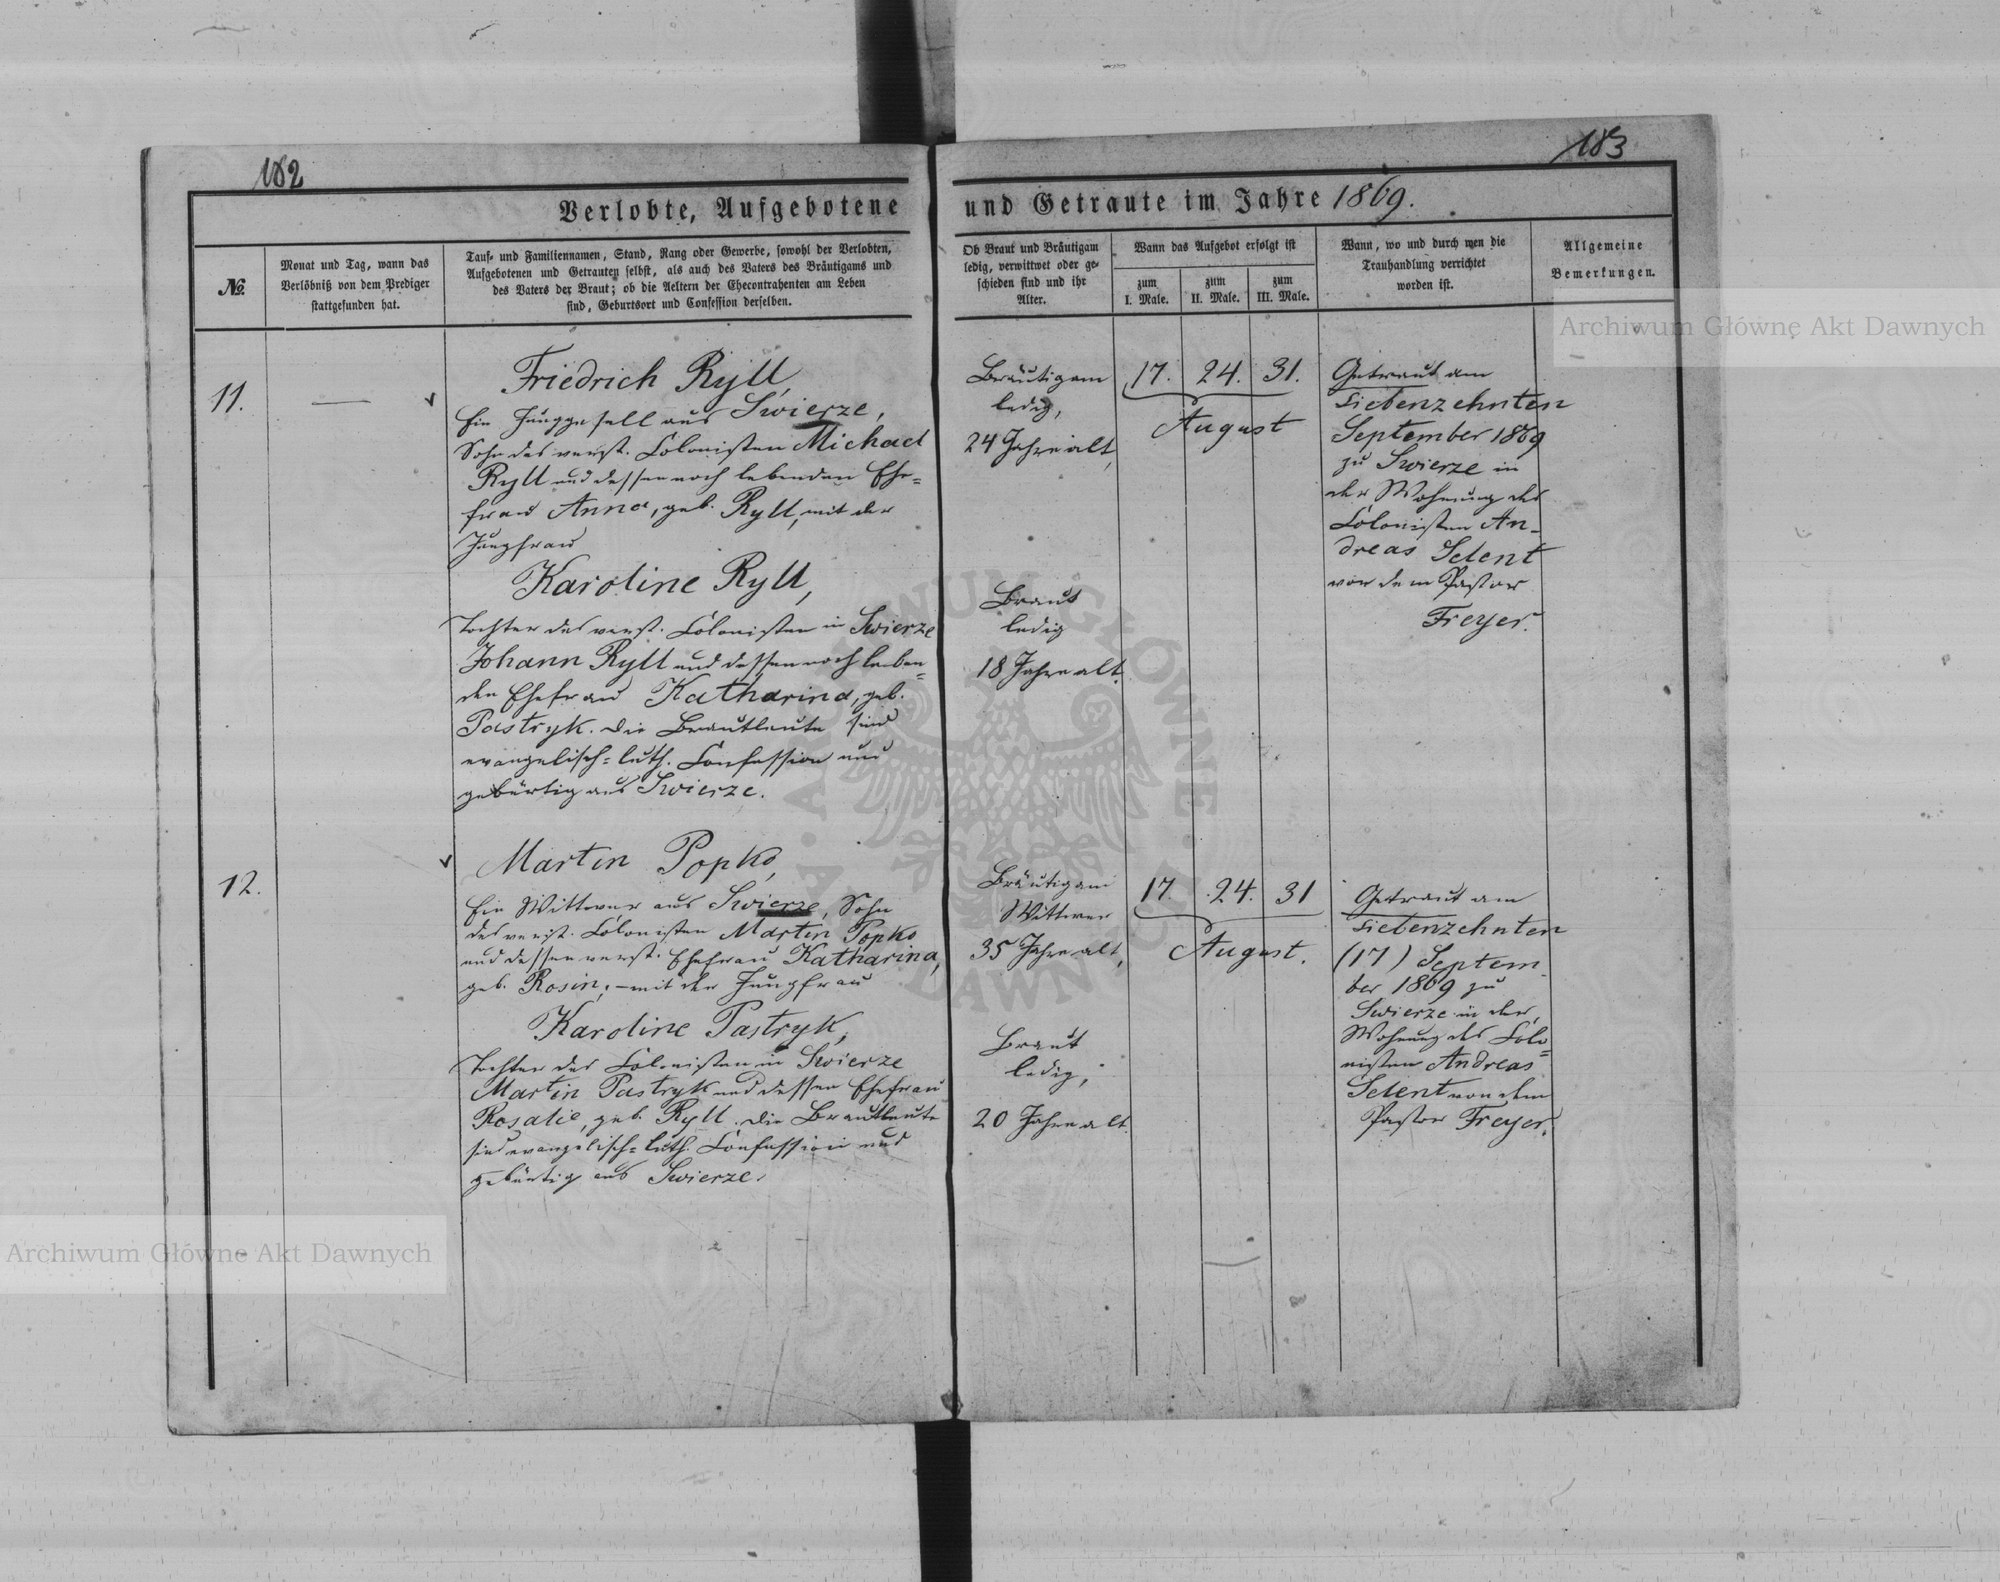 182
183
Verlobte, Aufgebotene und Getraute im Jahre 1869.
№.
Monat und Tag, wann das
Verlöbniß von dem Prediger
stattgefunden hat.
Tauf- und Familiennamen, Stand, Rang oder Gewerbe, sowohl der Verlobten,
Aufgebotenen und Getrauten selbst, als auch des Vaters des Bräutigams und
des Vaters der Braut; ob die Aeltern der Ehecontrahenten am Leben
sind, Geburtsort und Confession derselben.
Ob Braut und Bräutigam
ledig, verwittwet oder ge-
schieden sind und ihr
Alter.
Wann das Aufgebot erfolgt ist
zum
I. Male.
zum
II. Male.
zum
III. Male.
Wann, wo und durch wen die
Trauhandlung verrichtet
worden ist.
Allgemeine
Bemerkungen.
11.
Friedrich Ryll,
Ein Junggesell aus Swierze,
Sohn des verst. Colonisten Michael
Ryll und dessen noch lebenden Ehe=
frau Anna, geb. Ryll, mit der
Jungfrau
Karoline Ryll,
Tochter des verst. Colonisten in Swierze
Johann Ryll und dessen noch leben=
den Ehefrau Katharina, geb.
Pastryk. Die Brautleute sind
evangelisch=luth. Confession und
gebürtig aus Swierze.
Bräutigam
ledig,
24 Jahre alt,
Braut
ledig
18 Jahre alt.
17. 24. 31.
August
Getraut am
siebenzehnten
September 1869
zu Swierze in
der Wohnung des
Colonisten An-
dreas Selent
von dem Pastor
Freyer.
12.
Martin Popko,
Ein Wittwer aus Swierze, Sohn
des verst. Colonisten Martin Popko
und dessen verst. Ehefrau Katharina,
geb. Rosin, – mit der Jungfrau
Karoline Pastryk,
Tochter des Colonisten in Swierze
Martin Pastryk und dessen Ehefrau
Rosalie, geb. Ryll. Die Brautleute
sind evangelisch=luth. Confession und
gebürtig aus Swierze.
Bräutigam
Wittwer
35 Jahre alt,
Braut
ledig,
20 Jahre alt.
17. 24. 31
August.
Getraut am
siebenzehnten
(17) Septem
ber 1869 zu
Swierze in der
Wohnung des Colo=
nisten Andreas
Selent von dem
Pastor Freyer.
Archiwum Główne Akt Dawnych
Archiwum Główne Akt Dawnych